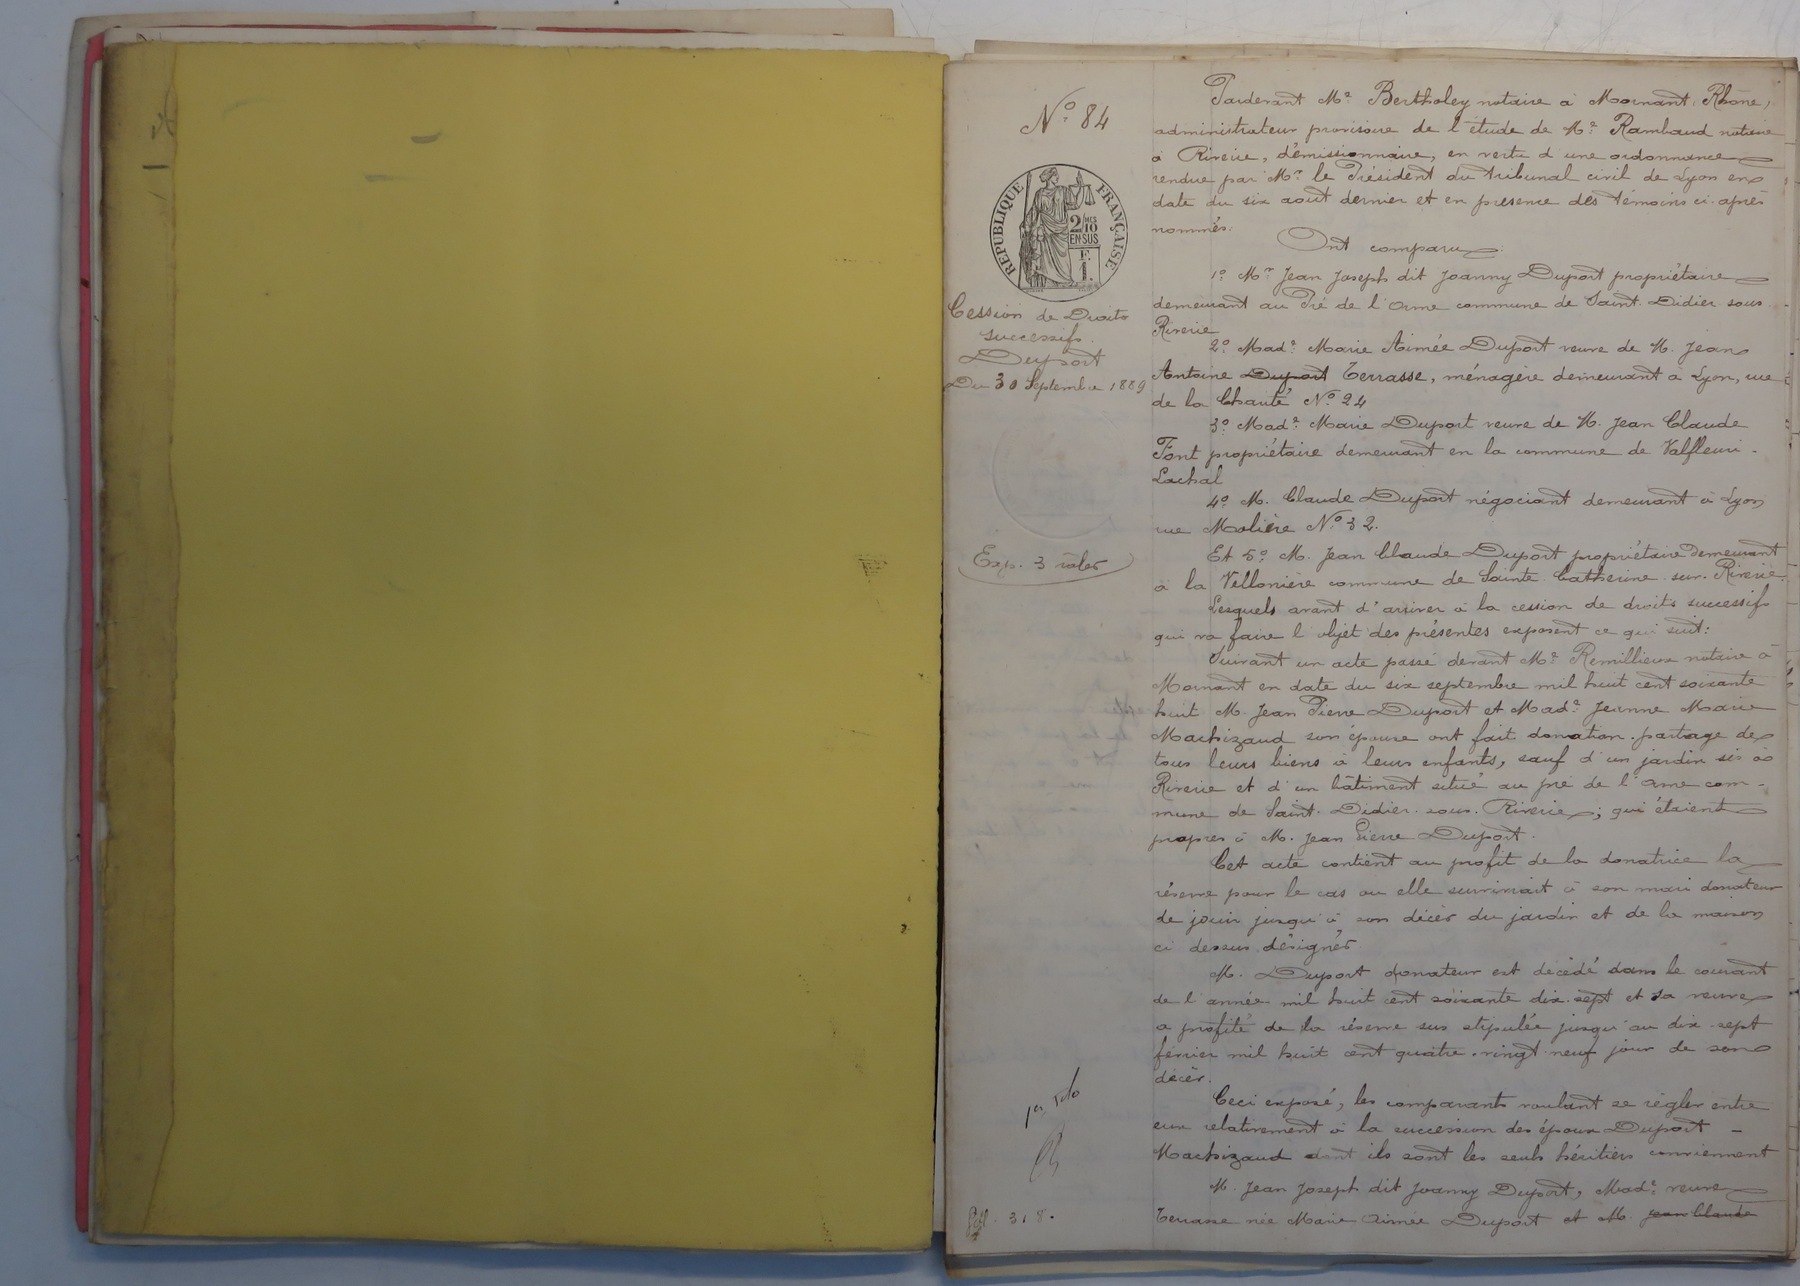 N° 84
RÉPUBLIQUE FRANÇAISE
2/MES
10
EN SUS
F.
1.
Cession de Droits
successifs.
Duport
Du 30 Septembre 1889
Exp. 3 rôles
1er rôle
318.
Pardevant Me Bertholey notaire à Mornant, Rhône,
administrateur provisoire de l'étude de Me Rambaud notaire
à Riverie, démissionnaire, en vertu d'une ordonnance
rendue par Mr le Président du tribunal civil de Lyon en
date du six août dernier et en présence des témoins ci-après
nommés:
Ont comparu:
1° Mr Jean Joseph dit Joanny Duport propriétaire
demeurant au Pré de l'Orme commune de Saint-Didier-sous-
Riverie
2° Made Marie Aimée Duport veuve de M. Jean
Antoine Duport Terrasse, ménagère demeurant à Lyon, rue
de la Charité N° 24
3° Made Marie Duport veuve de M. Jean Claude
Font propriétaire demeurant en la commune de Valfleuri-
Lachal
4° M. Claude Duport négociant demeurant à Lyon
rue Molière N° 32.
Et 5° M. Jean Claude Duport propriétaire demeurant
à la Villonière commune de Sainte-Catherine-sur-Riverie.
Lesquels avant d'arriver à la cession de droits successifs
qui va faire l'objet des présentes exposent ce qui suit:
Suivant un acte passé devant Me Remillieux notaire à
Mornant en date du six septembre mil huit cent soixante
huit M. Jean Pierre Duport et Made Jeanne Marie
Machizaud son épouse ont fait donation-partage de
tous leurs biens à leurs enfants, sauf d'un jardin sis à
Riverie et d'un bâtiment situé au pré de l'Orme com-
mune de Saint-Didier-sous-Riverie; qui étaient
propres à M. Jean Pierre Duport.
Cet acte contient au profit de la donatrice la
réserve pour le cas ou elle survivrait à son mari donateur
de jouir jusqu'à son décès du jardin et de la maison
ci dessus désignés
M. Duport donateur est décédé dans le courant
de l'année mil huit cent soixante dix-sept et sa veuve
a profité de la réserve sus stipulée jusqu'au dix-sept
février mil huit cent quatre-vingt-neuf jour de son
décès.
Ceci exposé, les comparants voulant se régler entre
eux relativement à la succession des époux Duport-
Machizaud dont ils sont les seuls héritiers conviennent
M. Jean Joseph dit Joanny Duport, Made veuve
Terrasse née Marie Aimée Duport et M. Jean Claude